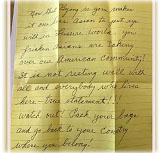 Now that Flying so you makes
it one less Asian to put up
with in Leisure World. You
fricken Asians are taking
over our American Community!
It is not resting well with
all and everybody who lives
here - true statement!!!
Watch out! Pack your bags
and go back to your Country
where you belong!